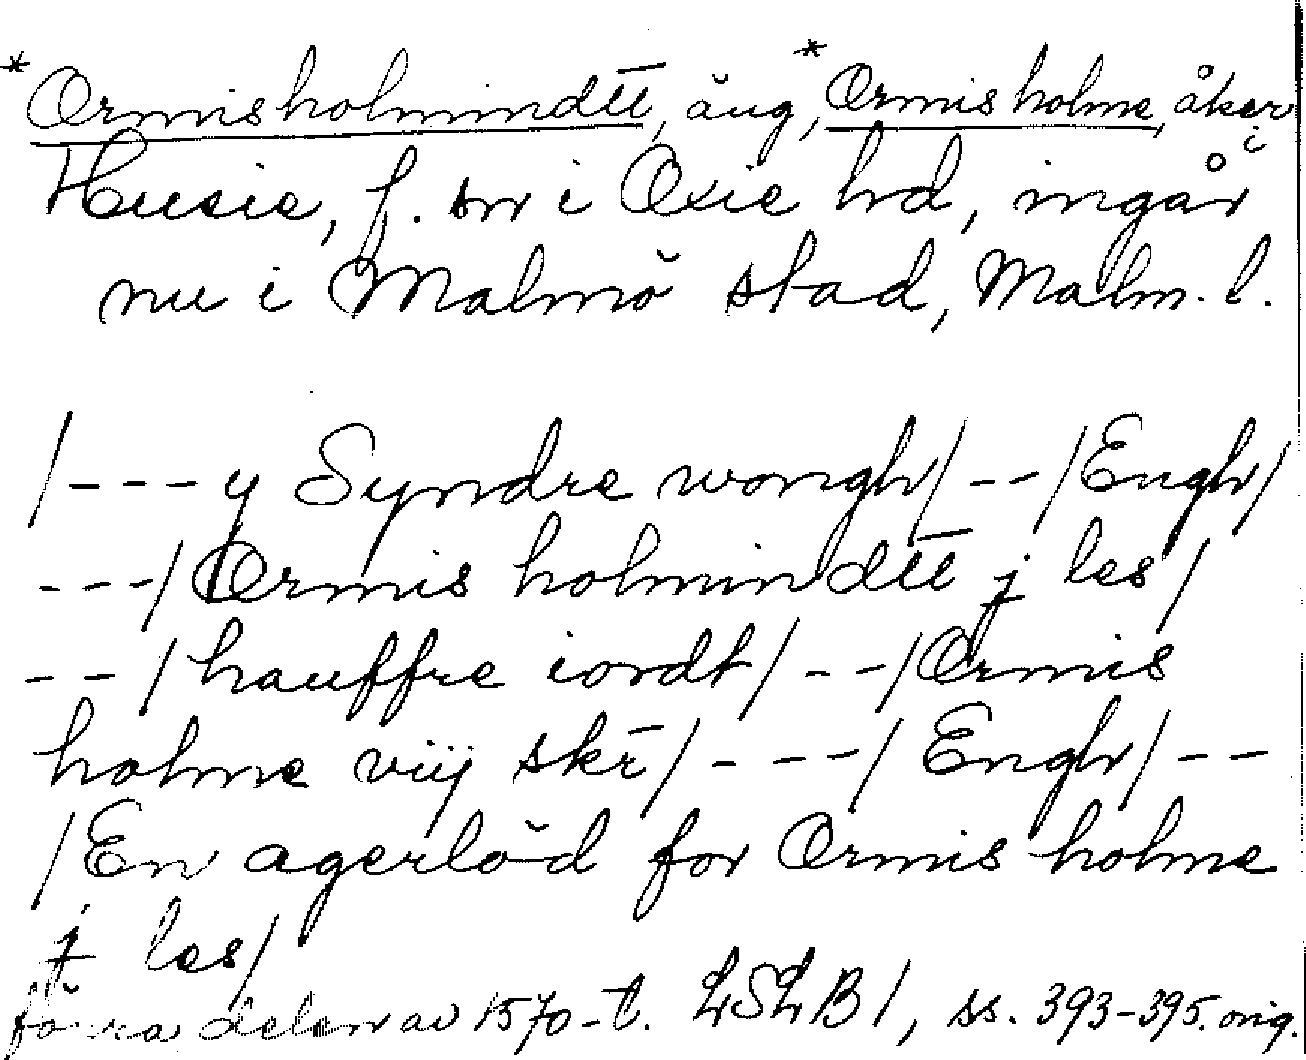 *Ormisholmindtt̄, äng, *Ormis holme, åker i
Husie, f. sn i Oxie hd, ingår
nu i Malmö stad, Malm. l.
/---y Syndre wongh/--/Engh/
---/Ormis holmindtt̄ j les/
--/hauffre iordt/--/Ormis
holme viij skr̄/---/Engh/--
/En agerlöd for Ormis holme
j les/
förra delen av 1570-t. LSLB1, ss. 393-395. orig.